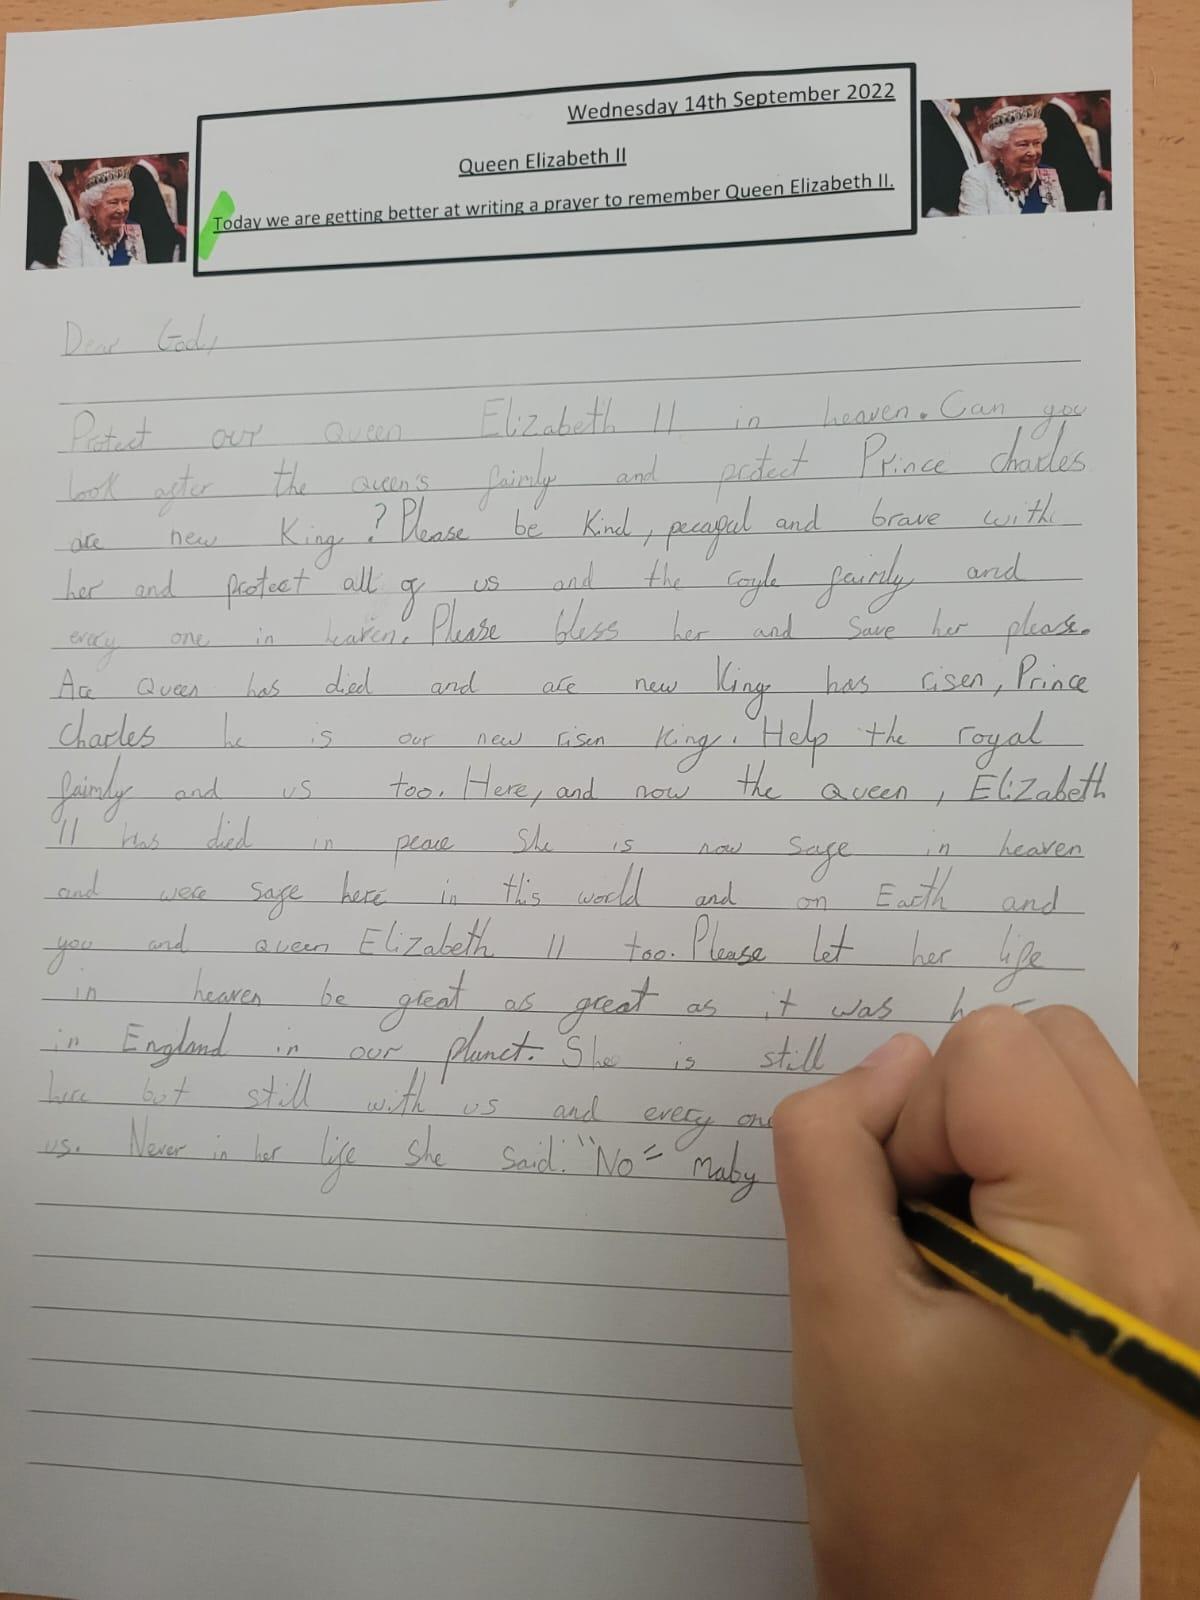 Wednesday 14th September 2022
Queen Elizabeth II
Today we are getting better at writing a prayer to remember Queen Elizabeth II.
Dear God,
Protect our Queen Elizabeth II in heaven. Can you
look after the queen's faimly and protect Prince charles
are new King? Please be kind, pecaful and brave with
her and protect all of us and the royle faimly and
every one in heaven. Please bless her and save her please.
Are Queen has died and are new King has risen, Prince
Charles he is our new risen King. Help the royal
faimly and us too. Here, and now the queen, Elizabeth
II has died in peace she is now safe in heaven
and were safe here in this world and on Earth and
you and queen Elizabeth II too. Please let her life
in heaven be great as great as it was
in England in our planet. She is still
here but still with us and every
us. Never in her life she said: "No" maby